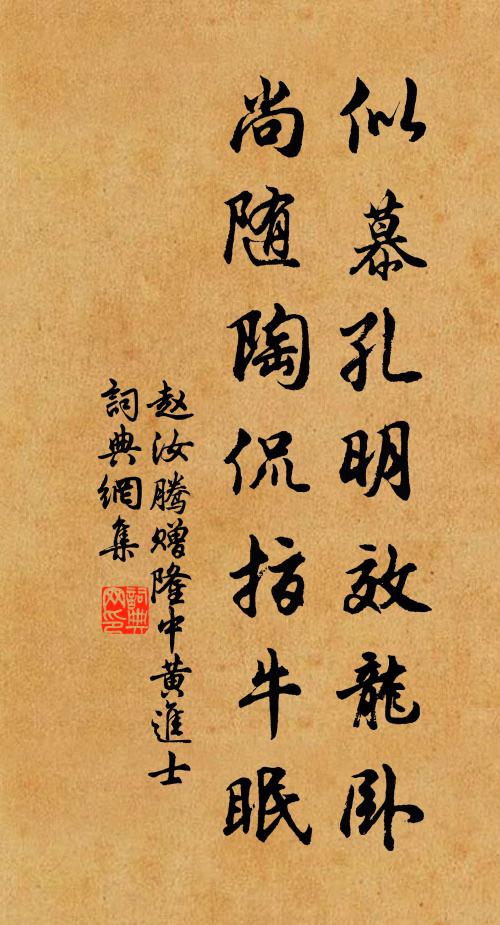 似慕孔明效龍卧
尚随陶侃指牛眠
赵汝腾赠隆中黄進士
詞典網集
詞典网印